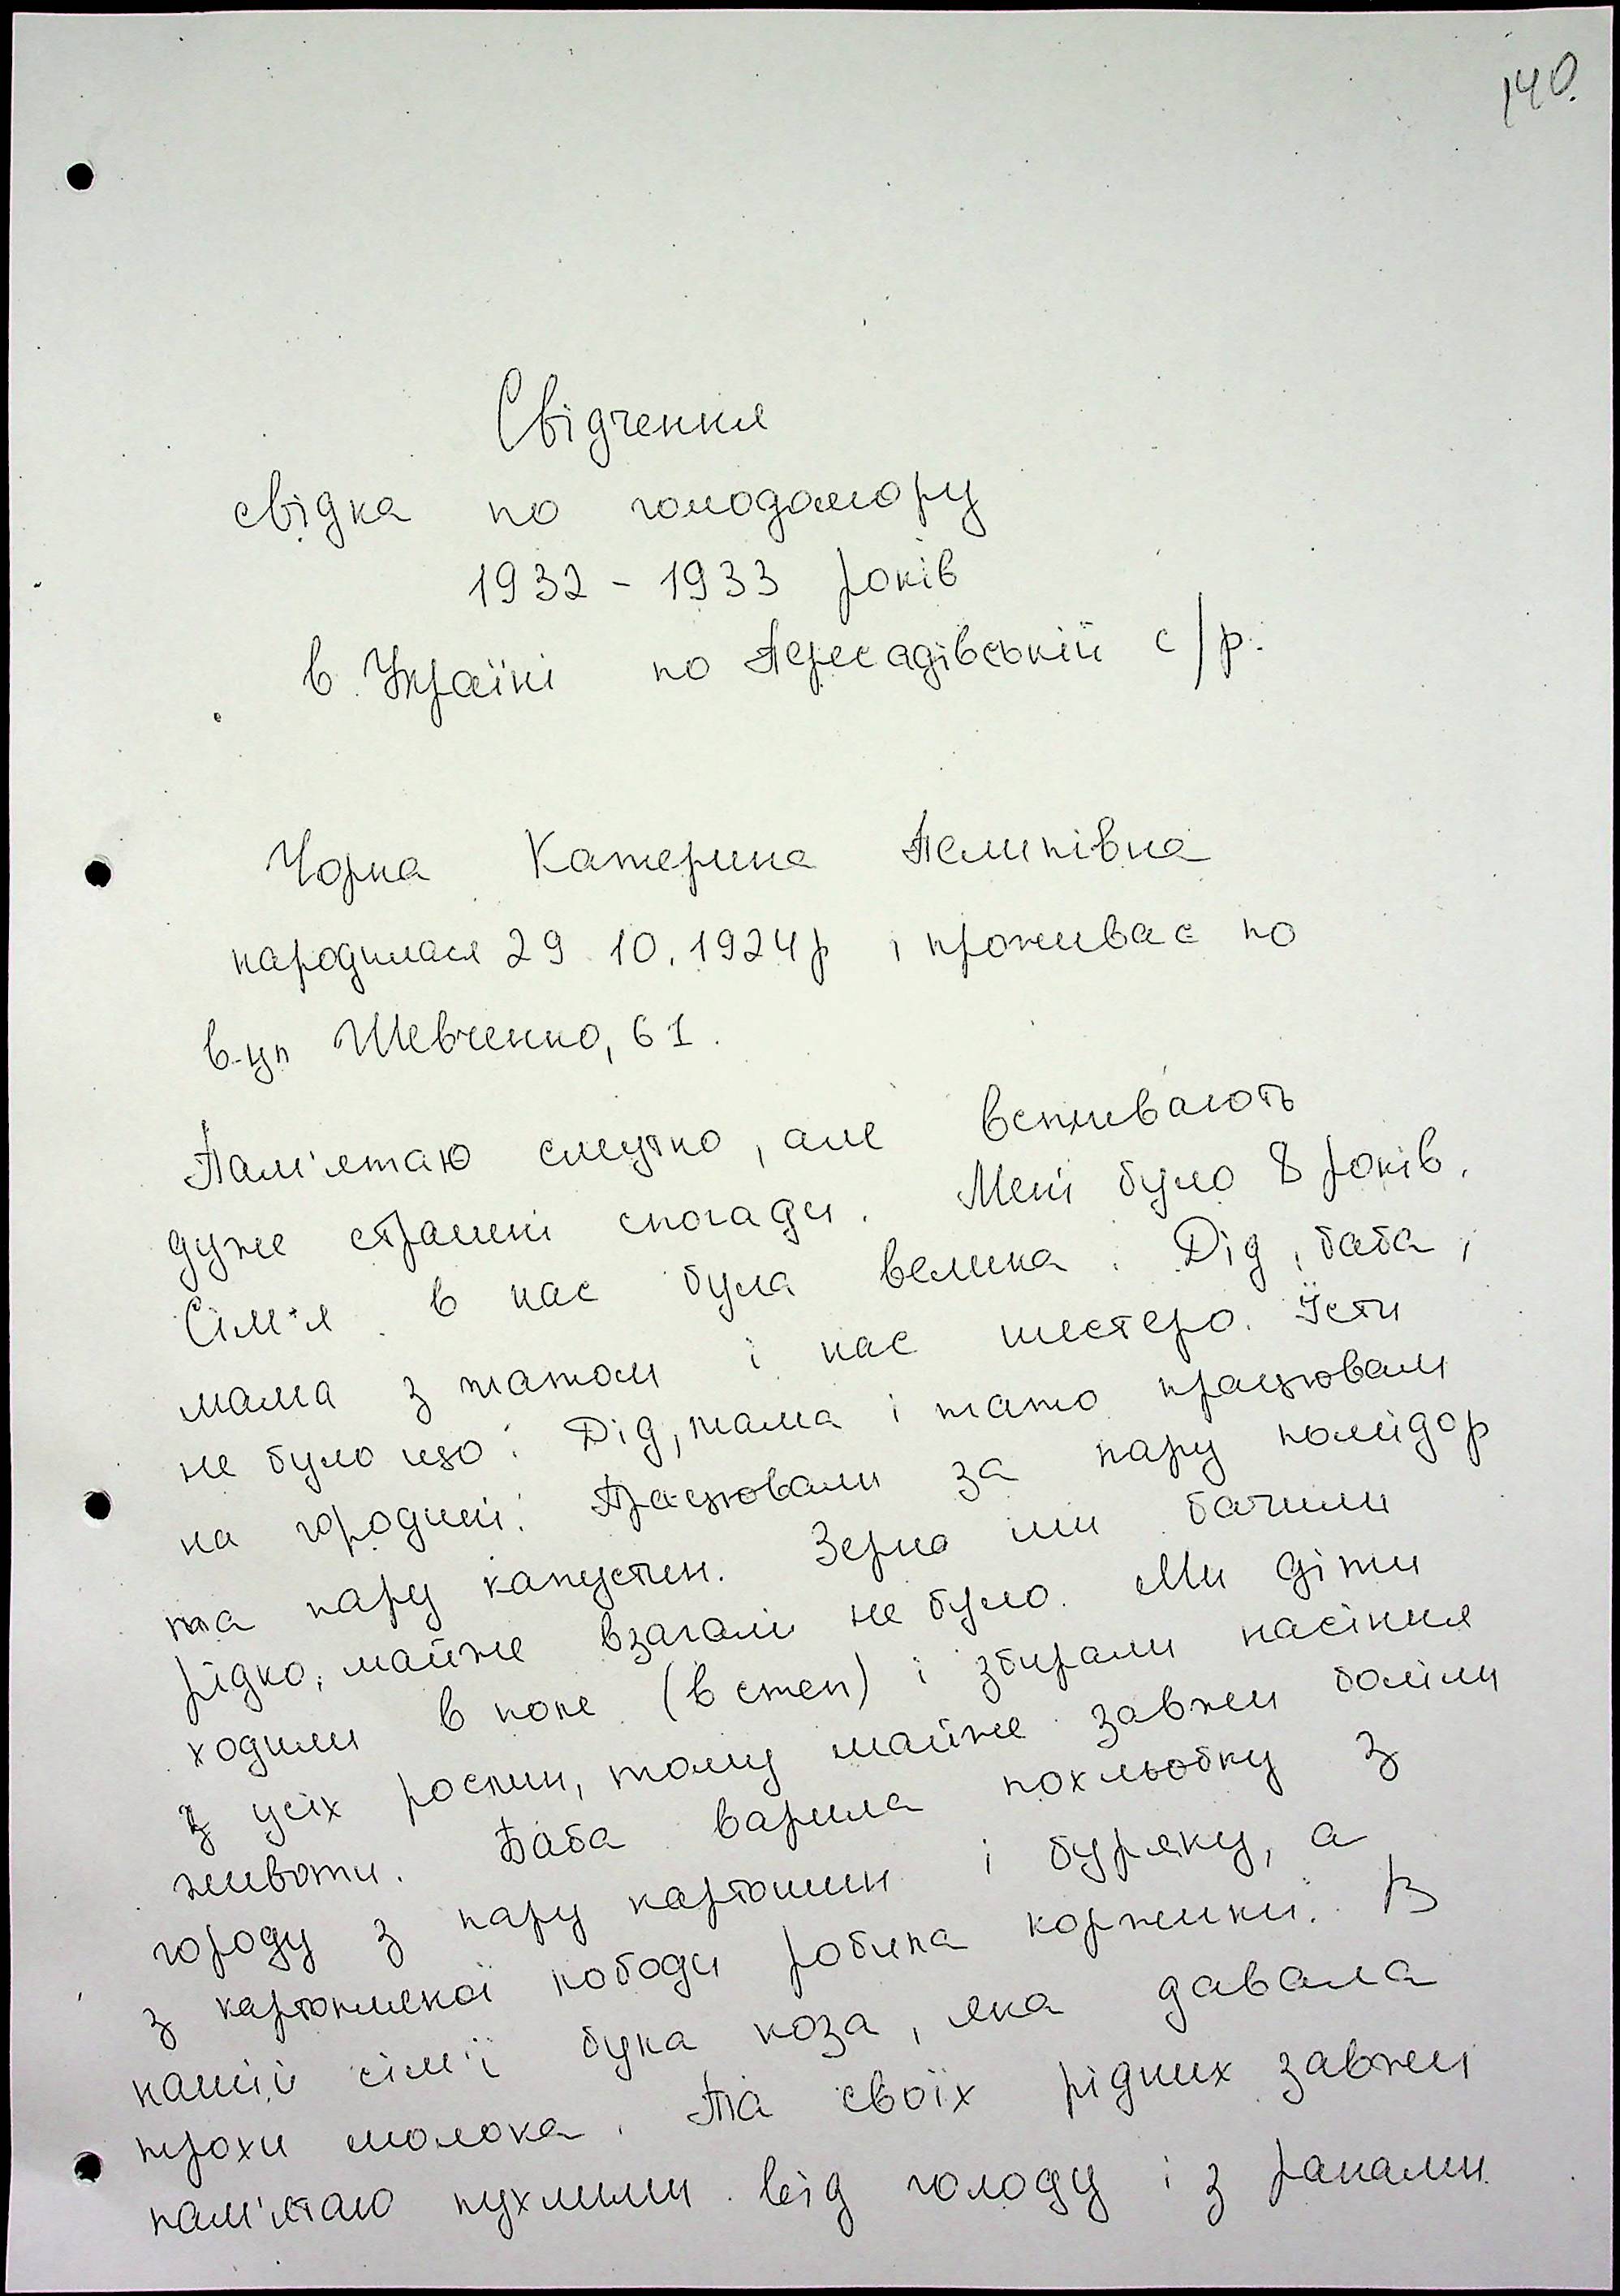 140.
Свідчення
свідка по голодомору
1932 - 1933 років
в Україні по Пересадівській с/р.
Чорна Катерина Пилипівна
народилася 29.10.1924р і проживає по
вул Шевченко, 61.
Пам'ятаю смутно, але вспливають
дуже страшні спогади. Мені було 8 років.
Сім'я в нас була велика. Дід, баба,
мама з татом і нас шестеро. Їсти
не було що. Дід, мама і тато працювали
на городині. Працювали за пару помідор
та пару капустин. Зерно ми бачили
рідко, майже взагалі не було. Ми діти
ходили в поле (в степ) і збирали насіння
з усіх рослин, тому майже завжди боліли
животи. Баба варила похльобку з
городу з пару картошин і буряку, а
з картопляної лободи робила коржики. В
нашій сім'ї була коза, яка давала
трохи молока. Та своїх рідних завжди
пам'ятаю пухлими від голоду і з ранами